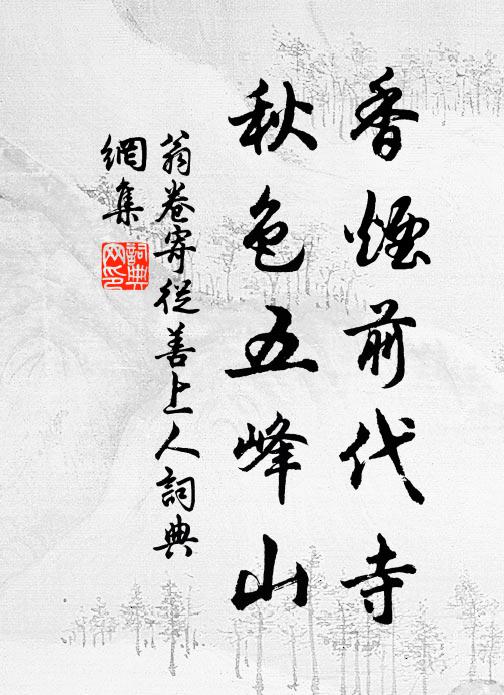 香煙前代寺
秋色五峰山
翁卷寄從善上人詞典
網集
詞典
网印